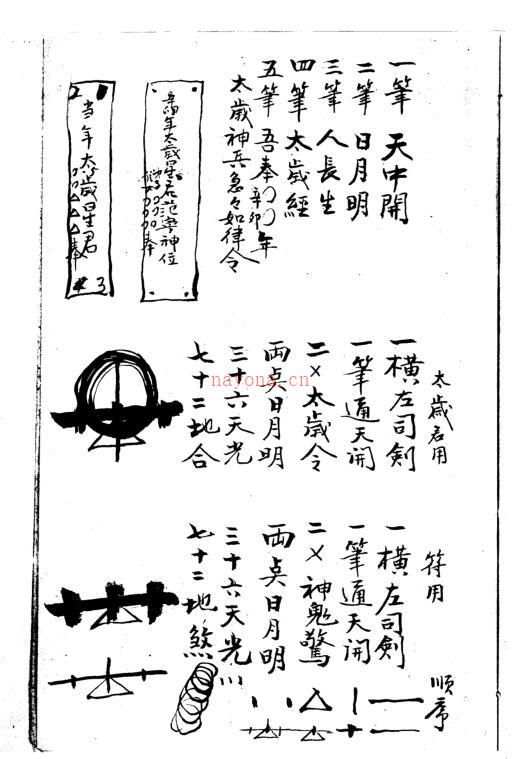 一筆 天中開
二筆 日月明
三筆 人長生
四筆 太歲經
五筆 吾奉〇〇年
辛卯
太歲神兵急々如律令
辛卯年太歲星君范寧神位
〇〇〇〇奉
当年太歲星君
〇〇△△△奉
2
3
太歲君用
一橫左司劍
一筆通天開
二×太歲令
両点日月明
三十六天光
七十二地合
nayona.cn
符用
一橫左司劍
一筆通天開
二×神鬼驚
両点日月明
三十六天光
七十二地煞
順序